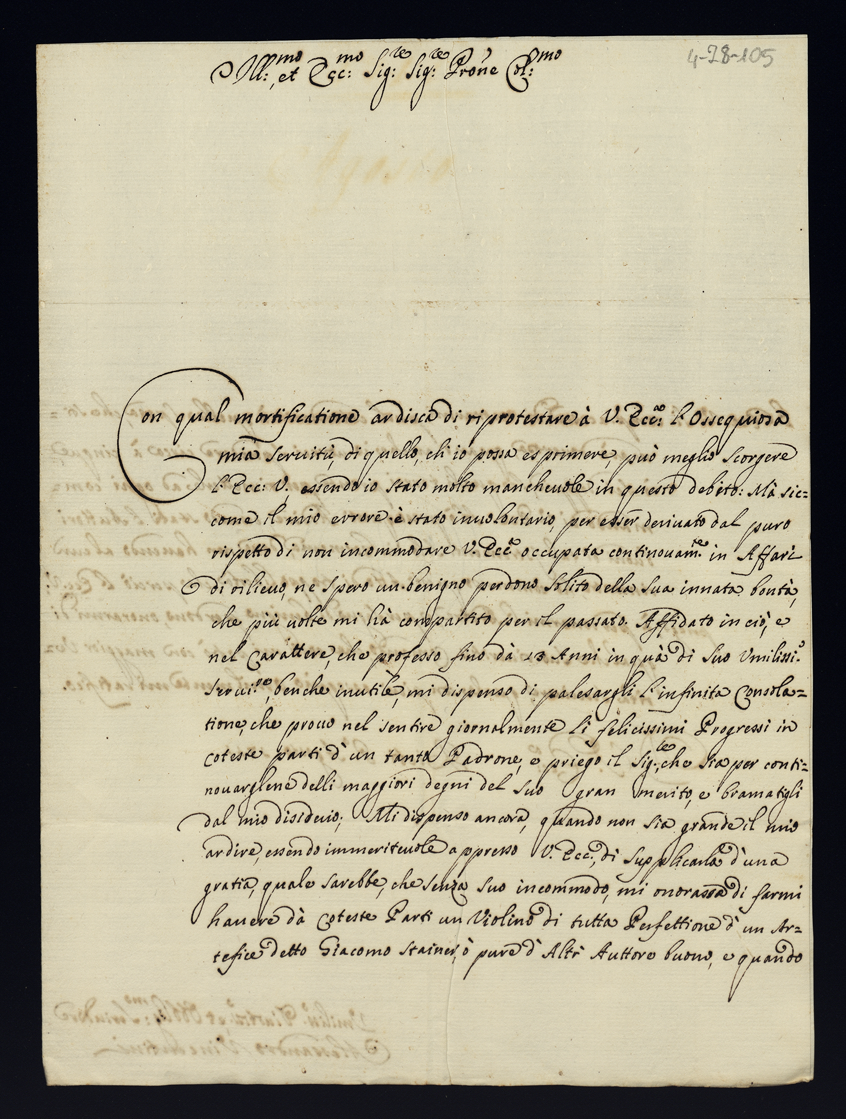 Ill:mo et Ecc:mo Sig:re Sig:re Prone Col:mo
4-28-105
Agosto
Con qual mortificatione ardisca di riprotestare à V. Ecc:a l'Ossequiosa
mia Seruitù, di quello, ch'io possa esprimere, può meglio Scorgere
l'Ecc: V. essendo io stato molto mancheuole in questo debito: Mà sic=
come il mio errore è stato inuolontario, per esser deriuato dal puro
rispetto di non incommodare V. Ecc:a occupata continouam:te in Affari
di rilieuo, ne spero un benigno perdono Solito della Sua innata bontà,
che più uolte mi hà conpartito per il passato. Affidato in ciò, e
nel Carattere, che professo fino dà 13 Anni in quà di Suo Vmilissi:o
Serui:re, benche inutile, mi dispenso di palesargli l'infinita Consola=
tione, che prouo nel sentire giornalmente li felicissimi Progressi in
coteste parti d'un tanto Padrone, e priego il Sig:re, che sia per conti=
nouarglene delli maggiori degni del Suo gran merito, e bramatigli
dal mio disiderio; Mi dispenso ancora, quando non sia grande il mio
ardire, essendo immeriteuole appresso V. Ecc:a, di Supplicarla d'una
gratia, quale sarebbe, che senza Suo incommodo, mi onorassa di farmi
hauere dà Coteste Parti un Violino di tutta Perfettione d'un Ar=
tefice detto Giacomo Stainer, ò pure d'Altr'Auttore buono, e quando